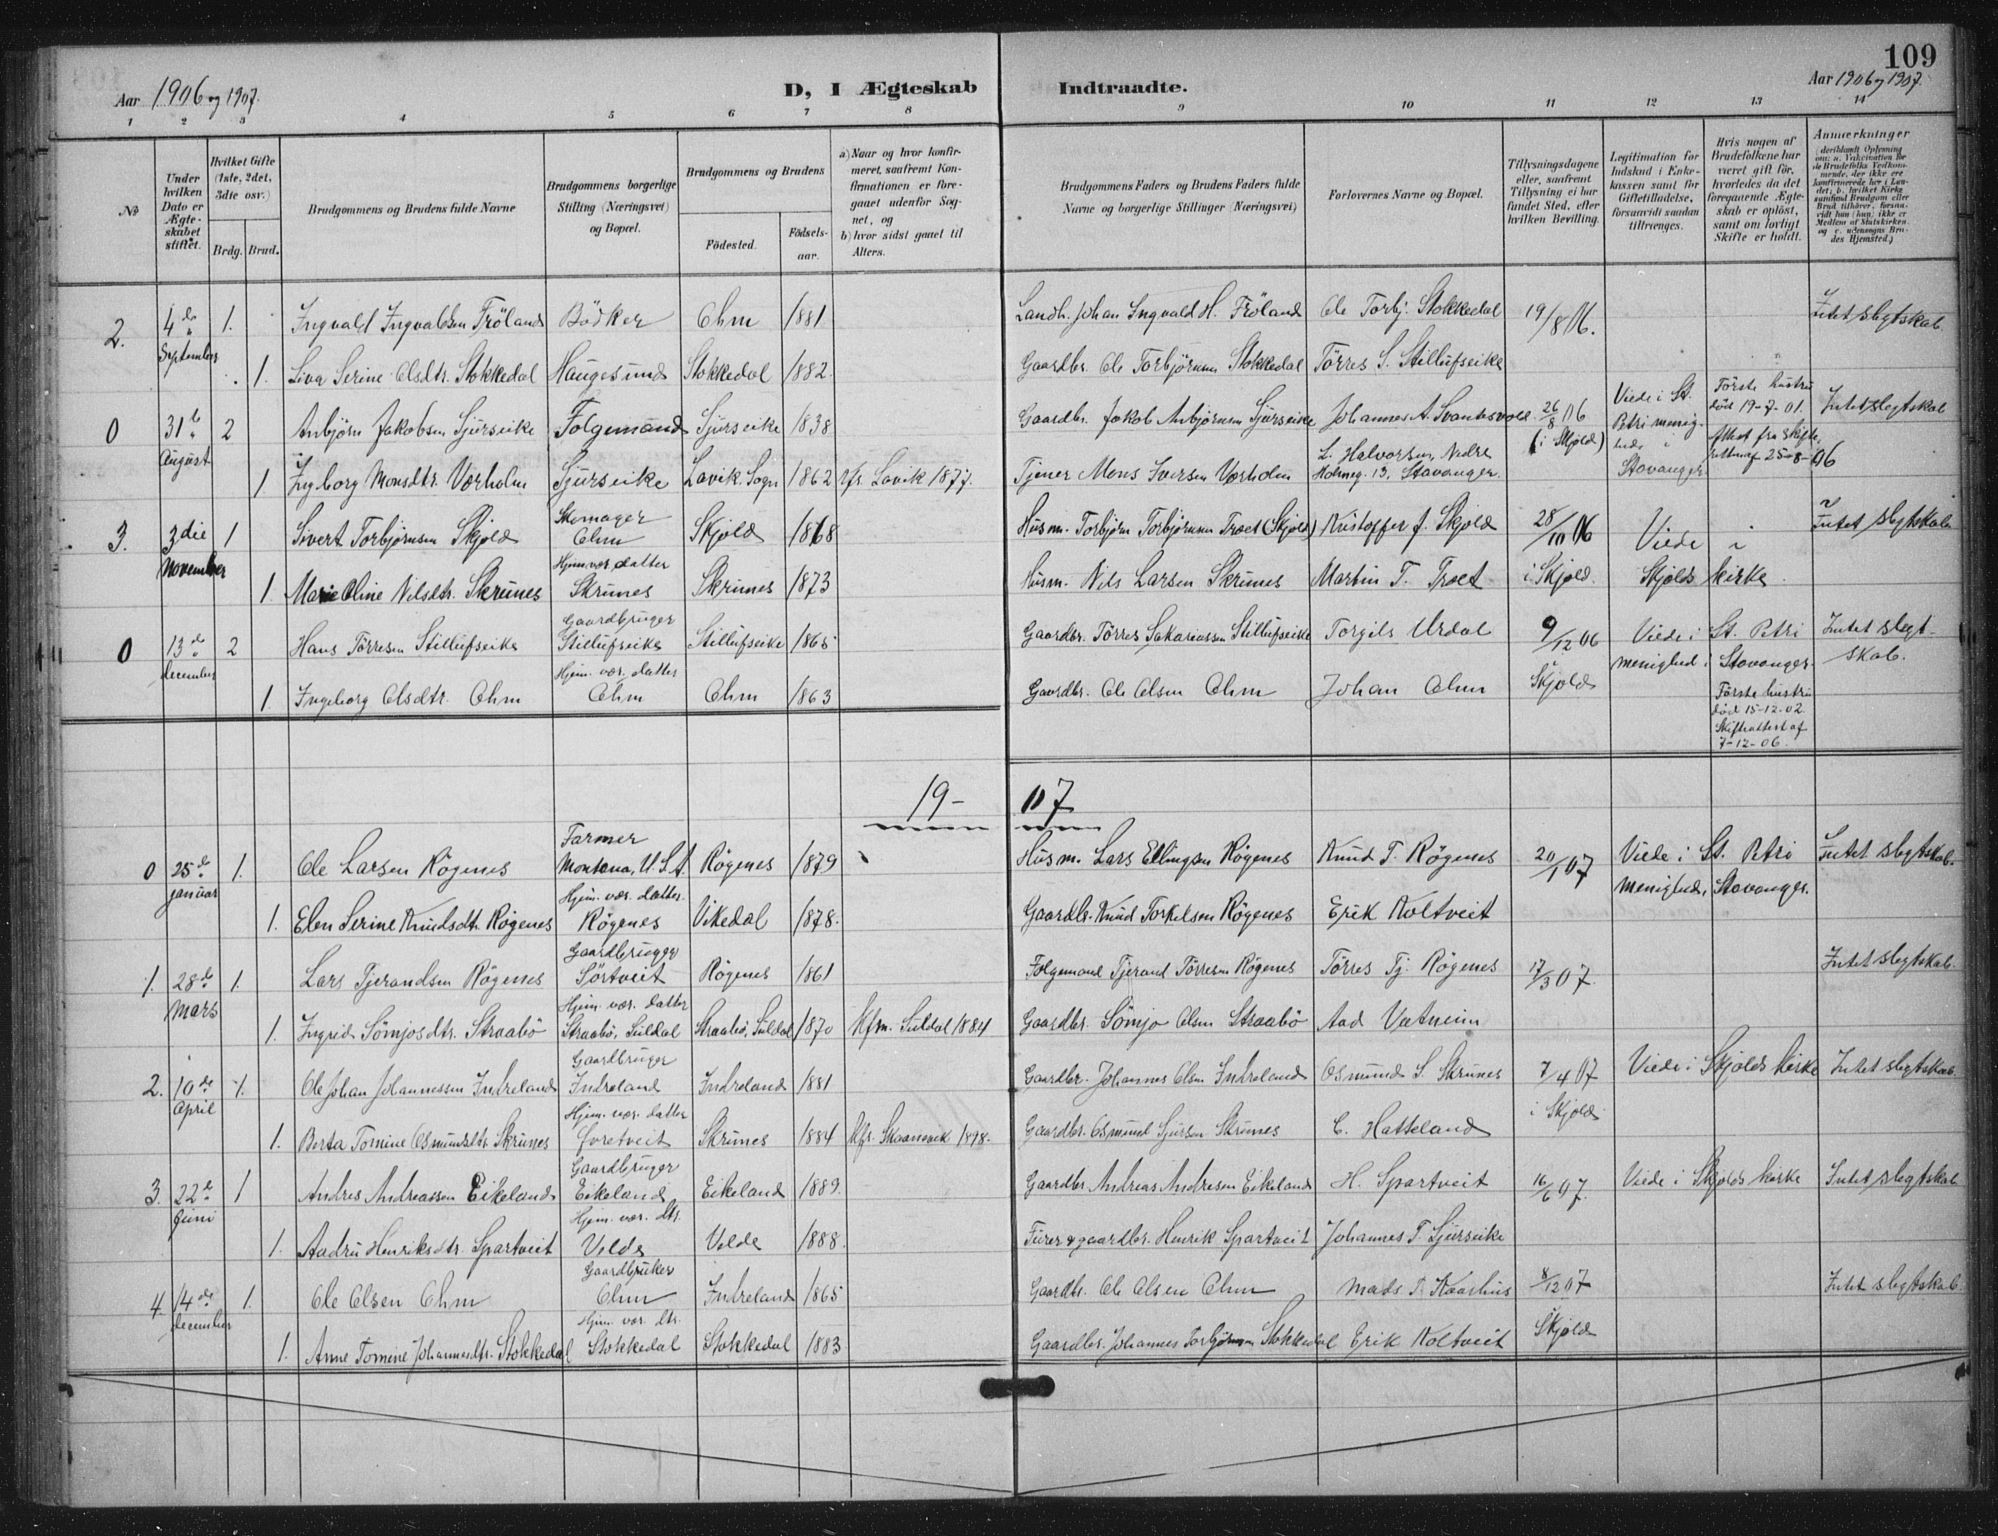 109
Aar 1906 og 1907.
D, I Ægteskab Indtraadte.
Aar 1906 og 1907.
1 2 3 4 5 6 7 8 9 10 11 12 13 14
No
Under hvilken Dato er Ægteskabet stiftet.
Hvilket Gifte (1ste, 2det, 3die osv.)
Brdg. Brud.
Brudgommens og Brudens fulde Navne
Brudgommens borgerlige Stilling (Næringsvei) og Bopæl.
Brudgommens og Brudens
Fødested.
Fødselsaar.
a) Naar og hvor konfirmeret, saafremt Konfirmationen er foregaaet udenfor Sognet, og
b) hvor sidst gaaet til Alters.
Brudgommens Faders og Brudens Faders fulde Navne og borgerlige Stillinger (Næringsvei)
Forlovernes Navne og Bopæl.
Tillysningsdagene eller, saafremt Tillysning ei har fundet Sted, efter hvilken Bevilling.
Legitimation for Indskud i Enkekassen samt for Giftetilladelse, forsaavidt saadan tiltrænges.
Hvis nogen af Brudefolkene har været gift før, hvorledes da det foregaaende Ægteskab er opløst, samt om lovligt Skifte er holdt.
Anmærkninger (deriblandt Oplysning om: a. Vakcination for de Brudefolks Vedkommende, der ikke ere konfirmerede her i Landet; b. hvilket Kirkesamfund Brudgom eller Brud tilhører, forsaavidt han (hun) ikke er Medlem af Statskirken, og c. udensogns Brudes Hjemsted.)
2. 4de September 1. Ingvald Ingvaldsen Fröland Bödker Ohm 1881 Landh. Johan Ingvald H. Fröland Ole Torbj. Stokkedal 19/8 06. Intet slegtskab.
1. Liva Serine Olsdtr. Stokkedal Haugesund Stokkedal 1882. Gaardbr. Ole Torbjørnsen Stokkedal Törres S. Stillufseike
0 31te August 2 Anbjörn Jakobsen Sjurseike Folgemand Sjurseike 1838 Gaardbr. Jakob Anbjørnsen Sjurseike Johannes A. Svantesvold 26/8 06 (i Skjold) Viede i St. Petri menighed i Stavanger Förste hustru död 19-7-01. Athst fra skifteretten af 25-8-06 Intet slegtskab
1 Ingborg Monsdtr. Værholm Sjurseike Lavik, Sogn 1862 Kfr. Lavik 1877. Tjener Mons Iversen Værholm L. Halvorsen, Nedre Holmeg. 13, Stavanger
3. 3die November 1 Sivert Torbjørnsen Skjold Skomager Ohm Skjold 1868 Husm. Torbjørn Torbjørnsen Troet (Skjold) Kristoffer J. Skjold 28/10 06 Viede i Intet slegtskab
1. Marie Oline Nilsdtr. Skrunes Hjem. vær. datter Skrunes Skrunes 1873 Husm. Nils Larsen Skrunes Martin T. Troet i Skjold. Skjolds kirke.
0 13de December 2 Hans Törresen Stillufseike Gaardbruger Stillufseike Stillufseike 1865 Gaardbr. Törres Sakariassen Stillufseike Torgils Urdal 9/12 06 Viede i St. Petri Intet slegtskab.
1. Ingeborg Olsdtr. Ohm Hjem. vær. datter Ohm Ohm 1863 Gaardbr. Ole Olsen Ohm Johan Ohm Skjold menighed i Stavanger. Förste hustru död 15-12-02. Skifteattest af 7-12-06.
19-07
0 25de januar 1. Ole Larsen Rögenes Farmer Montana, U.S.A. Rögenes 1879 Husm. Lars Ellingsen Rögenes Knud T. Rögenes 20/1 07 Viede i St. Petri Intet slegtskab.
1. Elen Serine Knudsdtr. Rögenes Hjem. vær. datter Rögenes Vikedal 1878. Gaardbr. Knud Torkelsen Rögenes Erik Koltveit menighed, Stavanger.
1. 28de Mars 1. Lars Tjerandsen Rögenes Gaardbruger Sörtveit Rögenes 1861 Folgemand Tjerand Törresen Rögenes Törres Tj. Rögenes 17/3 07. Intet slegtskab.
1. Ingrid Sömjosdtr. Straabö Hjem. vær. datter Straabö, Suldal Straabö, Suldal 1870 Kfm. Suldal 1884 Gaardbr. Sömjo Olsen Straabö Aad Vatneim
2. 10de April 1. Ole Johan Johannessen Indreland Gaardbruger Indreland Indreland 1881 Gaardbr. Johannes Olsen Indreland Osmund S. Skrunes 7/4 07 i Skjold. Viede i Skjolds kirke Intet slegtskab.
1. Berta Tomine Osmundsdtr. Skrunes Hjem. vær. datter Skrunes 1884 Kfr. Skaanevik 1898. Gaardbr. Osmund Sjursen Skrunes C. Hatteland
3. 22de Juni 1 Andres Andreassen Eikeland Gaardbruger Eikeland Eikeland 1889. Gaardbr. Andreas Andresen Eikeland H. Spartveit 16/6 07. Viede i Skjolds kirke Intet slegtskab
1. Aadru Henriksdtr. Spartveit Hjem. vær. dtr. Velde Velde 1888. Furer & gaardbr. Henrik Spartveit Johannes T. Sjurseike
4. 14de december 1. Ole Olsen Ohm Gaardbruker Ohm Indreland 1865 Gaardbr. Ole Olsen Ohm Mads T. Kaarhus 8/12 07 Intet slegtskab.
1. Anne Tomine Johannesdtr. Stokkedal Hjem. vær. dtr. Stokkedal Stokkedal 1883 Gaardbr. Johannes Torbjørnsen Stokkedal Erik Koltveit Skjold